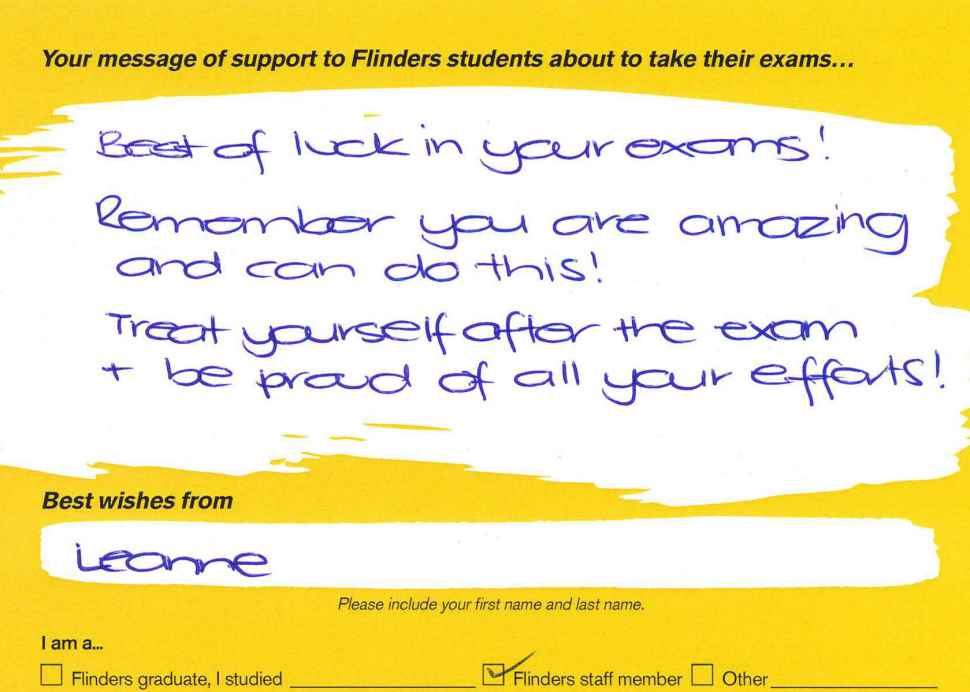 Your message of support to Flinders students about to take their exams...
Best of luck in your exams!
Remember you are amazing
and can do this!
Treat yourself after the exam
+ be proud of all your efforts!
Best wishes from
Leanne
Please include your first name and last name.
I am a...
Flinders graduate, I studied
Flinders staff member
Other